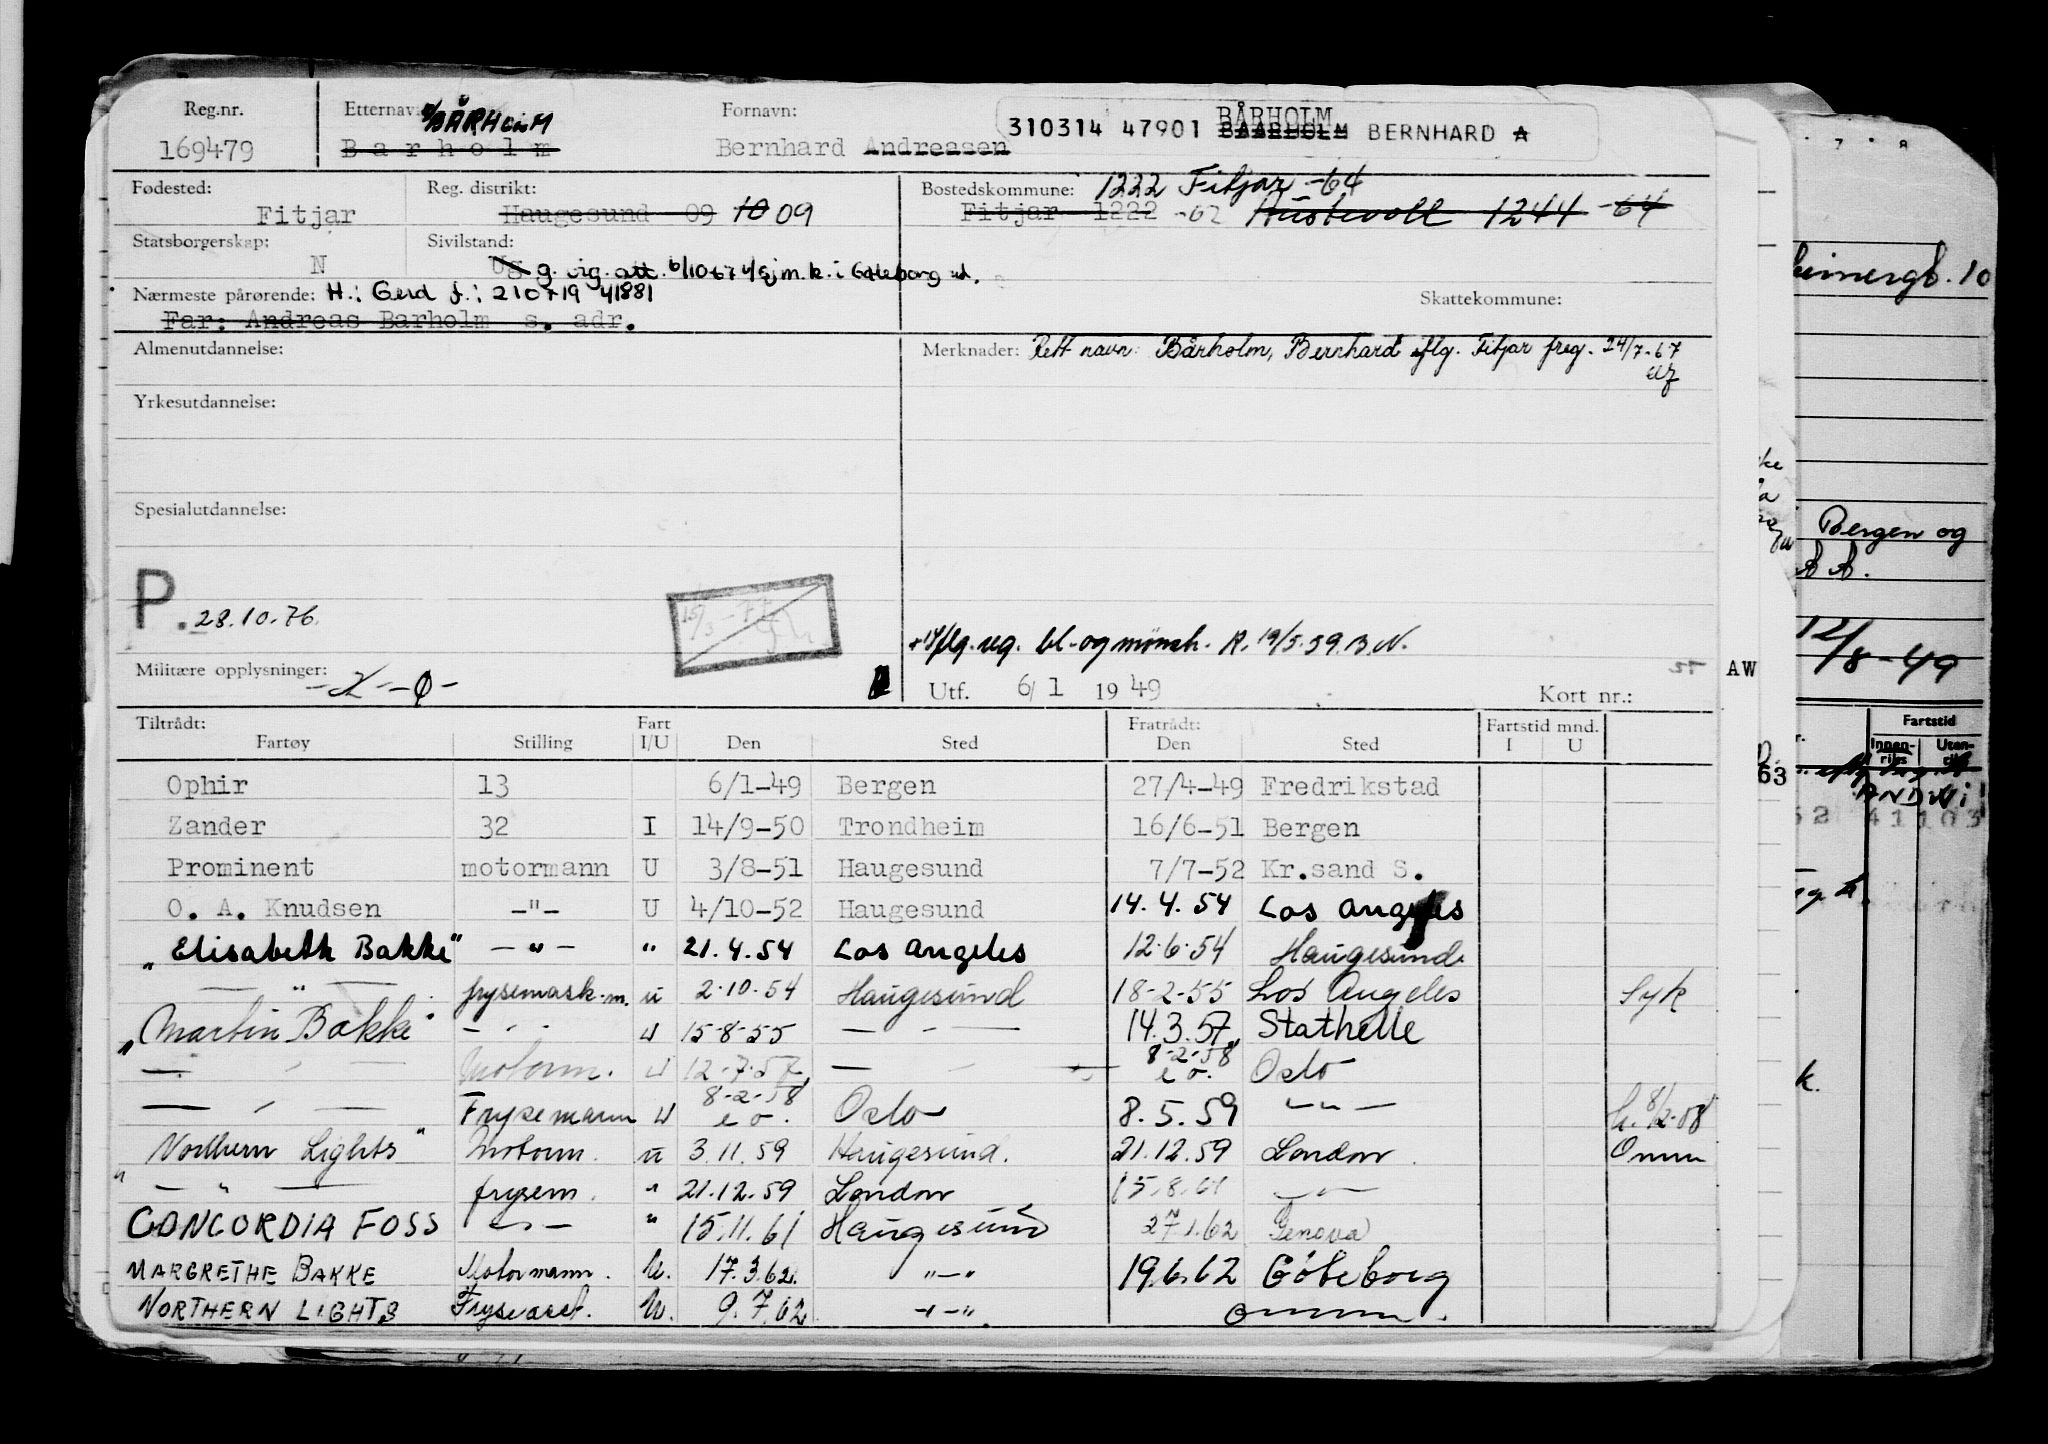 Reg.nr. Etternavn: Fornavn:
BÅRHOLM
310314 47901 BAARHOLM BERNHARD A
169479 Barholm Bernhard Andreasen
Fødested: Reg. distrikt: Bostedskommune: 1222 Fitjar -64
Fitjar Haugesund 09 10 09 Fitjar 1222 -62 Austevoll 1244 -64
Statsborgerskap: Sivilstand:
N Ug g. vig. att. 6/10-67 v/sjm.k. i Göteborg
Nærmeste pårørende: H.: Gerd f.: 210719 41881 Skattekommune:
Far: Andreas Barholm s. adr.
Almenutdannelse: Merknader: Rett navn: Bårholm, Bernhard iflg. Fitjar freg. 24/7-67
Yrkesutdannelse:
Spesialutdannelse:
P. 28.10.76
15/3-77
iflg. reg. bl. og mønstr. R. 19/5.59. B.N.
Militære opplysninger: Utf. 6/1 1949 Kort nr.:
Tiltrådt: Fart Fratrådt: Fartstid mnd.
Fartøy Stilling I/U Den Sted Den Sted I U
Ophir 13 6/1-49 Bergen 27/4-49 Fredrikstad
Zander 32 I 14/9-50 Trondheim 16/6-51 Bergen
Prominent motormann U 3/8-51 Haugesund 7/7-52 Kr.sand S.
O. A. Knudsen -"- U 4/10-52 Haugesund 14.4.54 Los Angeles
"Elisabeth Bakke" -"- " 21.4.54 Los Angeles 12.6.54 Haugesund
— " — frysemask.m. u 2.10.54 Haugesund 18-2-55 Los Angeles Syk
"Martin Bakke" - " - U 15-8-55 — " — 14.3.57 Stathelle
— " — Motorm. U 12-7-57 — " — 8-2-58 e o. Oslo
— " — Frysemann U 8-2-58 e o. Oslo 8.5.59 — " —
"Northern Lights" Motorm. u 3.11.59 Haugesund. 21.12.59 London Omm
— " — frysem. " 21.12.59 London 15.8.61 — " —
CONCORDIA FOSS — " — " 15.11.61 Haugesund 27.1.62 Genova
MARGRETHE BAKKE Motormann. U. 17.3.62. "-" 19.6.62 Göteborg
NORTHERN LIGHTS U. 9.7.62 "-"
AW
63
10
Bergen og
12/8-49
Fartstid
Innenriks Utenriks
41103